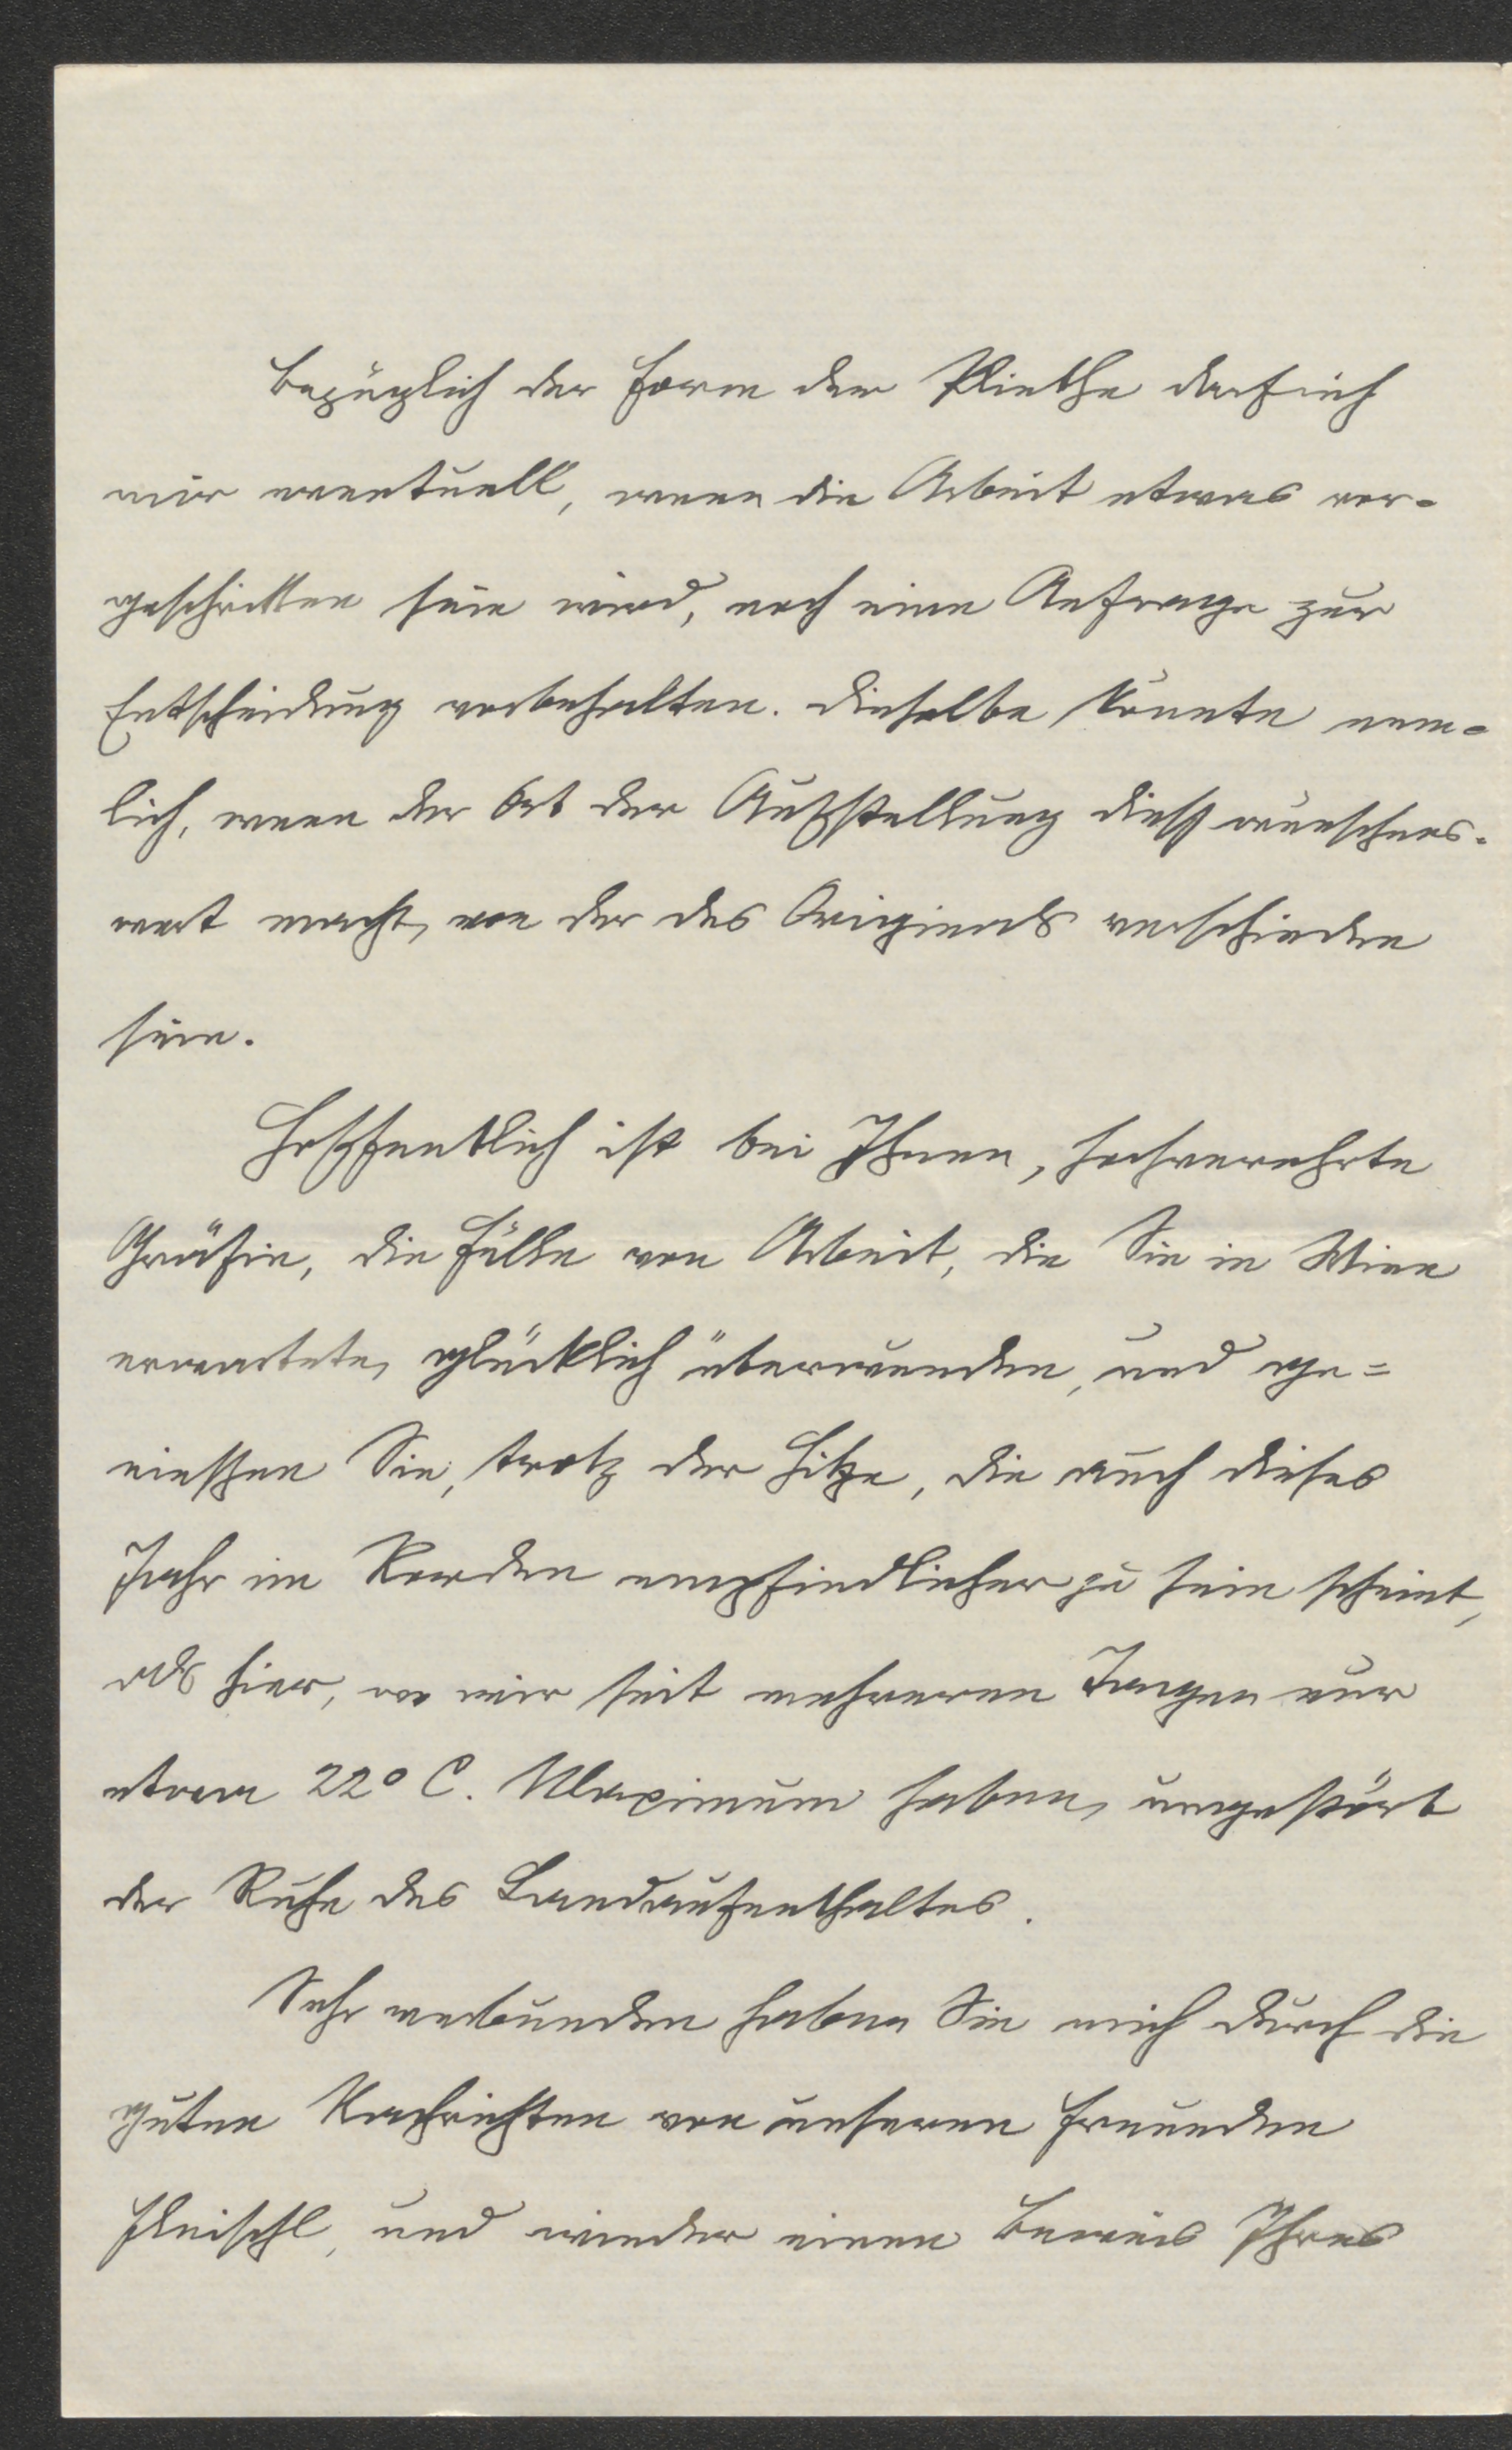 Bezüglich der Form der Plinthe darf ich
mir eventuell, wenn die Arbeit etwas vor-
geschritten sein wird, noch eine Anfrage zur
Entscheidung vorbehalten. Dieselbe könnte nem-
lich, wenn der Ort der Aufstellung dieß wünschens-
wert macht, von der des Originals verschieden
sein.
Hoffentlich ist bei Ihnen, hochverehrte
Gräfin, die Fülle von Arbeit, die Sie in Wien
erwartete, glücklich überwunden, und ge=
nießen Sie, trotz der Hitze, die auch dieses
Jahr im Norden empfindlicher zu sein scheint,
als hier, wo wir seit mehreren Tagen nur
etwa 22° C. Maximum haben, ungestört
der Ruhe des Landaufenthaltes.
Sehr verbunden haben Sie mich durch die
guten Nachrichten von unseren Freunden
Fleischl, und wieder einen Beweis Ihres